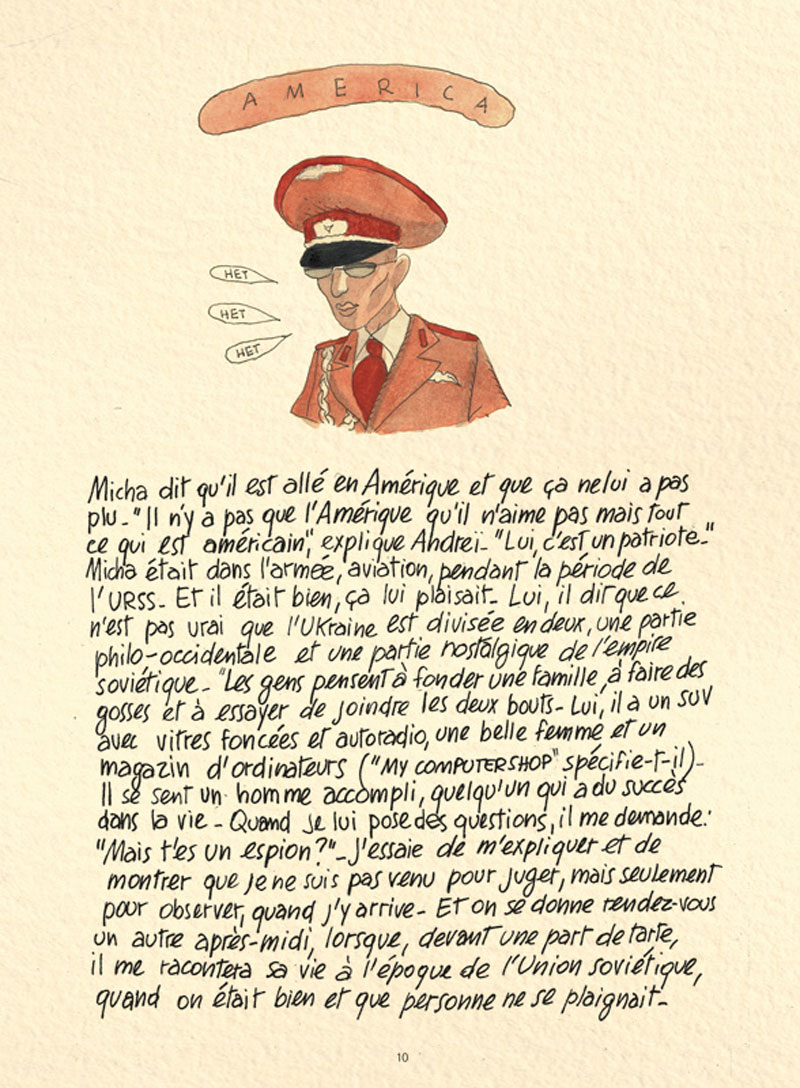 AMERICA
НЕТ
НЕТ
НЕТ
Micha dit qu'il est allé en Amérique et que ça ne lui a pas
plu_"Il n'y a pas que l'Amérique qu'il n'aime pas mais tout
ce qui est américain", explique Andreï_ "Lui, c'est un patriote_"
Micha était dans l'armée, aviation, pendant la période de
l'URSS_ Et il était bien, ça lui plaisait_ Lui, il dit que ce
n'est pas vrai que l'Ukraine est divisée en deux, une partie
philo-occidentale et une partie nostalgique de l'empire
soviétique_ "Les gens pensent à fonder une famille, à faire des
gosses et à essayer de joindre les deux bouts_ Lui, il a un SUV
avec vitres foncées et autoradio, une belle femme et un
magazin d'ordinateurs ("MY COMPUTERSHOP" spécifie-t-il)_
Il se sent un homme accompli, quelqu'un qui a du succès
dans la vie_ Quand je lui pose des questions, il me demande:
"Mais t'es un espion?"_ J'essaie de m'expliquer et de
montrer que je ne suis pas venu pour juger, mais seulement
pour observer, quand j'y arrive_ Et on se donne rendez-vous
un autre après-midi, lorsque, devant une part de tarte,
il me racontera sa vie à l'époque de l'Union soviétique,
quand on était bien et que personne ne se plaignait_
10